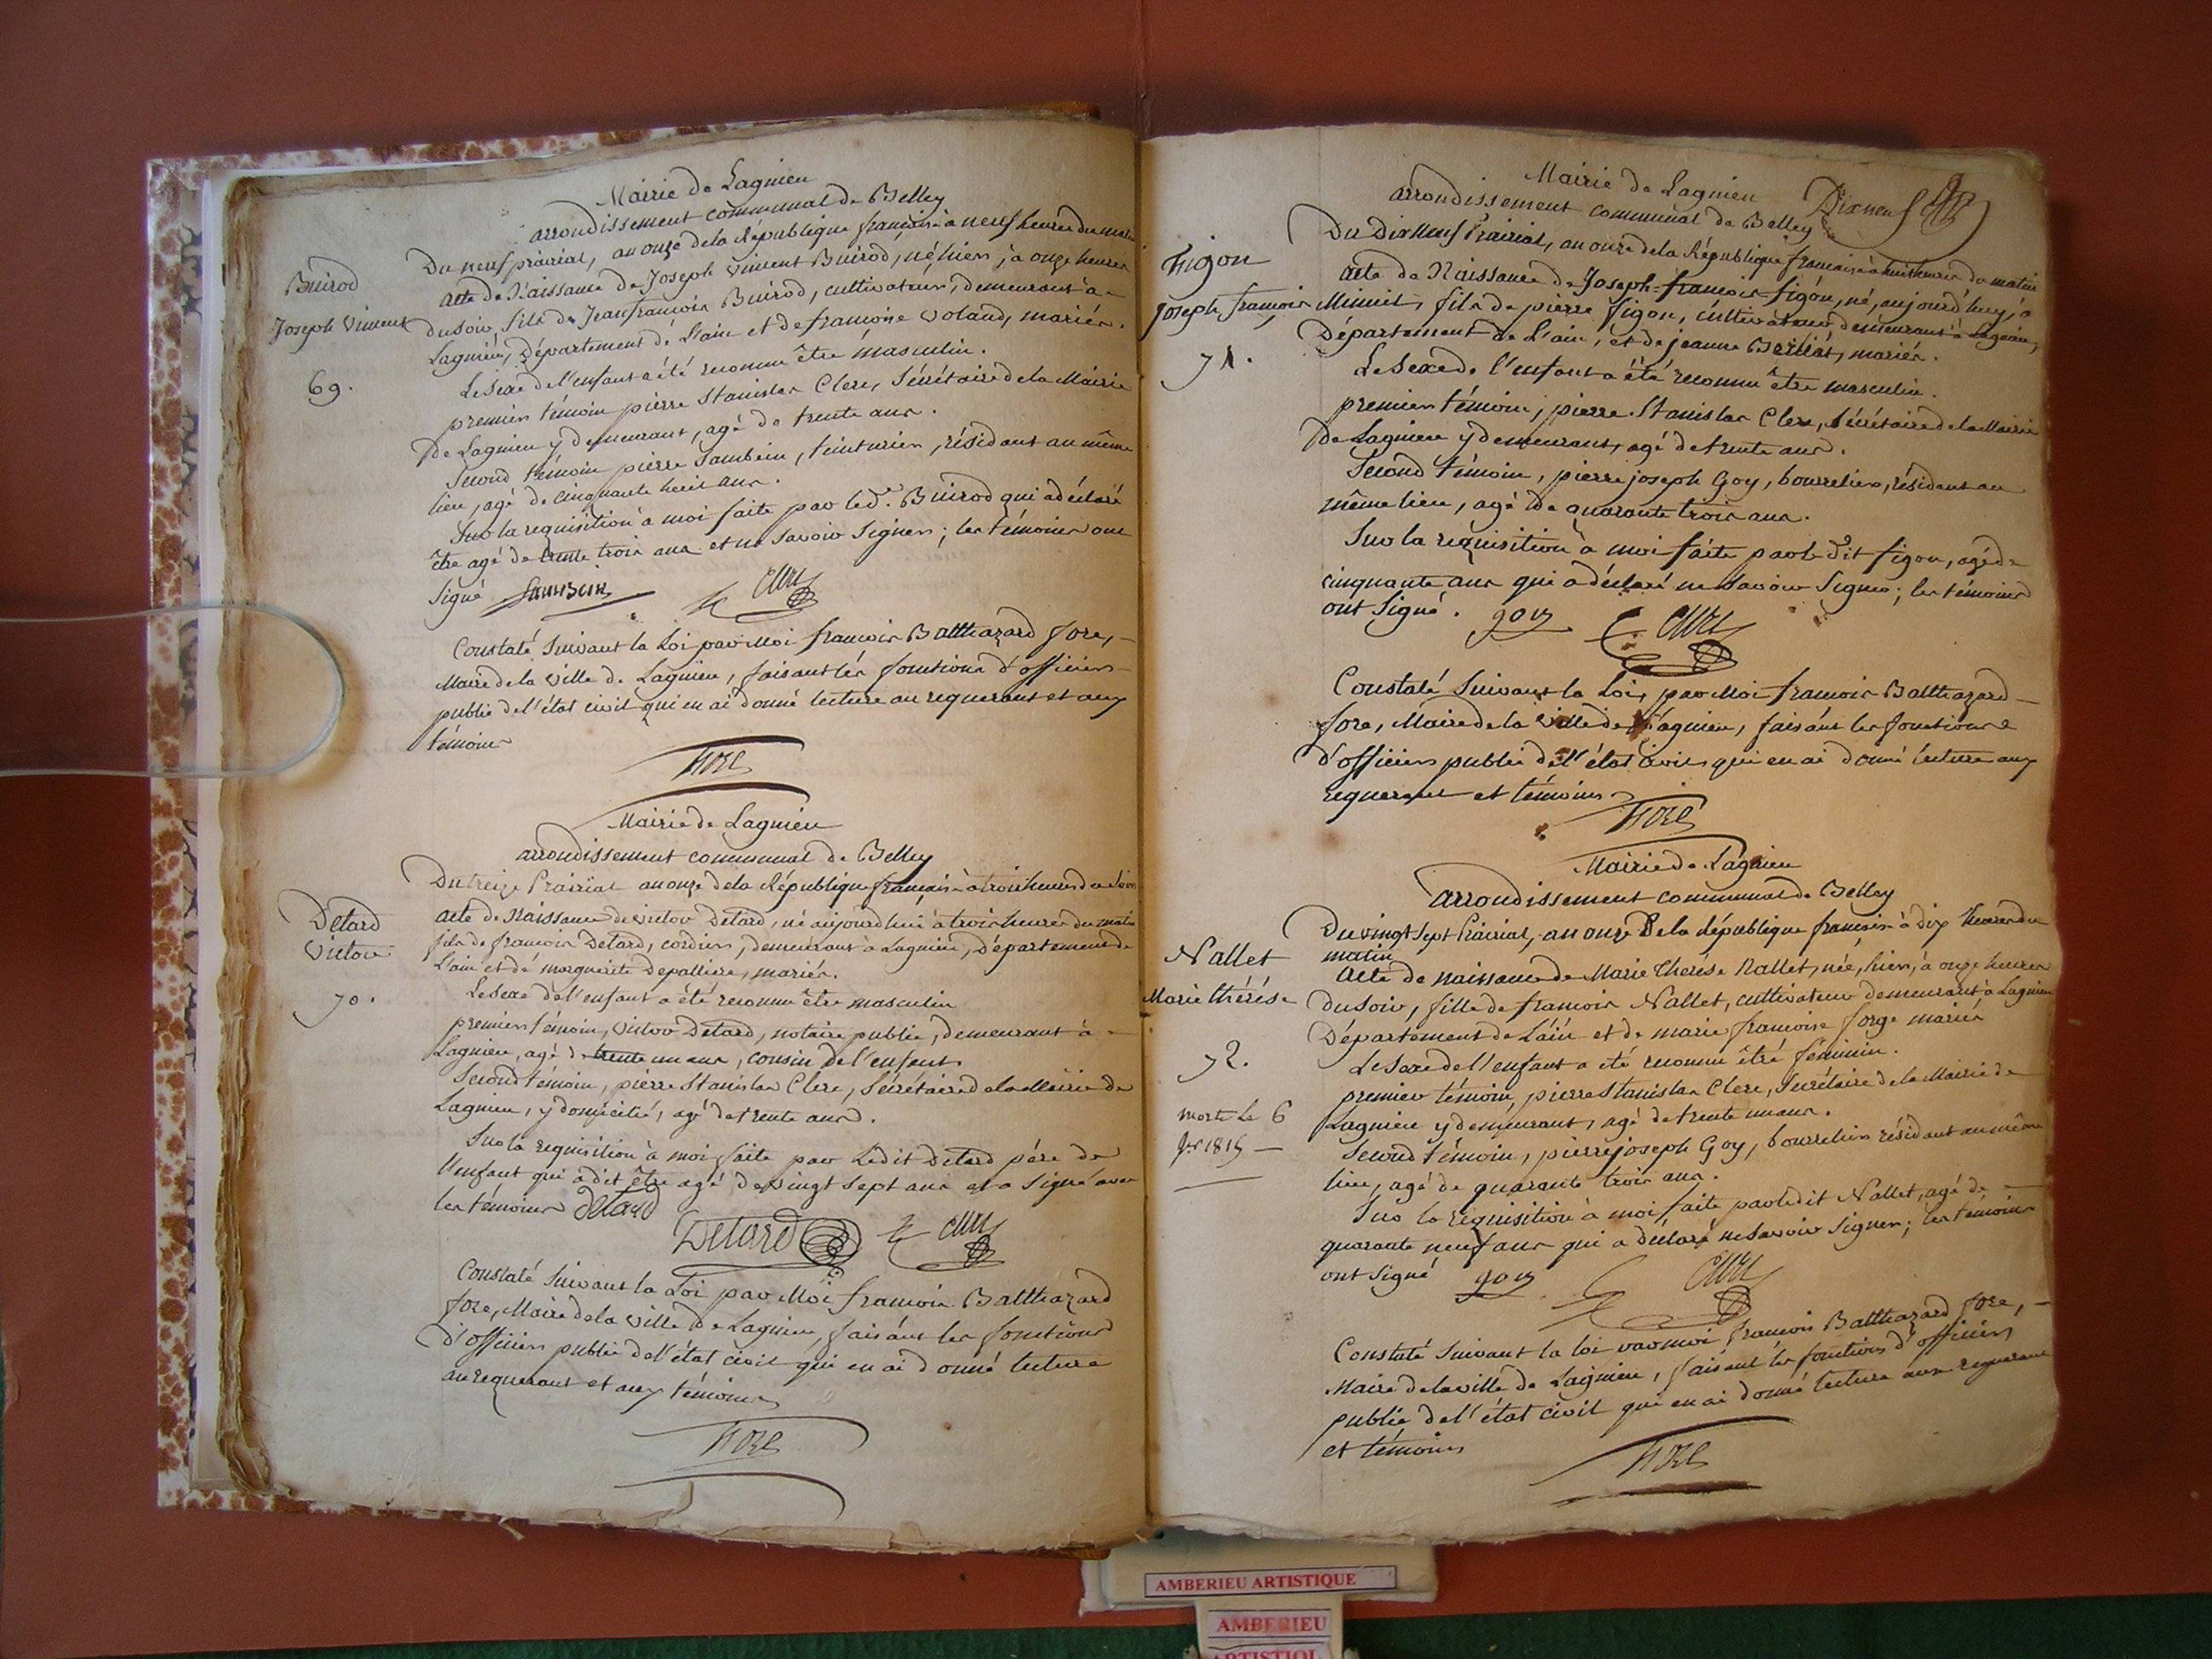 Mairie de Lagnieu
arrondissement communal de Belley
Du neuf prairial, an onze de la République françoise à neuf heures du matin
Buirod
Joseph Vincent
69.
acte de Naissance de Joseph Vincent Buirod, né, hier, à onze heures
du soir, fils de Jean françois Buirod, cultivateur, demeurant à
Lagnieu, Département de L'ain et de françoise Voland, mariés.
Le Sexe de l'enfant a été reconnu être masculin.
premier témoin pierre Stanislas Clerc, Sécrétaire de la Mairie
De Lagnieu y demeurant, agé de trente ans.
Second témoin pierre Sambein, teinturier, résidant au même
lieu, agé de cinquante huit ans.
Sur la requisition à moi faite par led. Buirod qui a déclaré
être agé de trente trois ans et ne savoir signer; les témoins ont
Signé
Constaté Suivant la Loi par Moi françois Balthazard fore,
Maire de la Ville de Lagnieu, faisant les fonctions d'officier
public de l'état civil qui en ai donné lecture au requerant et aux
témoins
Mairie de Lagnieu
arrondissement communal de Belley
Du treize Prairial an onze de la République françoise à trois heures du soir
Détard
Victor
70.
acte de Naissance de Victor Détard, né aujourd'hui à trois heures du matin
fils de françois Détard, cordier, demeurant à Lagnieu, Département de
L'ain et de marguerite Depalliere, mariés.
Le Sexe de l'enfant a été reconnu être masculin
premier témoin, Victor Détard, notaire public, demeurant à
Lagnieu, agé de trente un ans, cousin de l'enfant
Second témoin, pierre Stanislas Clerc, Sécrétaire de la Mairie de
Lagnieu, y domicilié, agé de trente ans.
Sur la requisition à moi faite par Ledit Détard père de
l'enfant qui a dit être agé de vingt sept ans et a Signé avec
les témoins Détard
Détard
Constaté Suivant la Loi par Moi françois Balthazard
fore, Maire de la Ville de Lagnieu, faisant les fonctions
d'officier public de l'état civil qui en ai donné lecture
au requerant et aux témoins
Mairie de Lagnieu
arrondissement communal de Belley
Dixneuf
Du Dixneuf Prairial, an onze de la République françoise à huit heures du matin
figon
Joseph françois
71.
acte de Naissance de Joseph-françois figon, né, aujourd'huy, à
Minuit, fils de pierre figon, cultivateur, demeurant à Lagnieu,
Département de L'ain, et de jeanne Berliat, mariés.
Le Sexe de l'enfant a été reconnu être masculin.
premier témoin, pierre Stanislas Clerc, Sécrétaire de la Mairie
De Lagnieu y demeurant, agé de trente ans.
Second témoin, pierre joseph Goy, bourrelier, résidant au
même lieu, agé de quarante trois ans.
Sur la réquisition à moi faite par le dit figon, agé de
cinquante ans qui a déclaré ne savoir Signer; les témoins
ont Signé. goy
Constaté Suivant la Loi, par Moi françois Balthazard
fore, Maire de la Ville de Lagnieu, faisant les fonctions
d'officier public de l'état civil, qui en ai donné lecture aux
requerant et témoins
Mairie de Lagnieu
arrondissement communal de Belley
Du vingt Sept Prairial, an onze de la République françoise à Dix heures du
matin
Nallet
Marie thérése
72.
morte Le 6
1815
acte de naissance de Marie Thérése Nallet, née, hier, à onze heures
du soir, fille de françois Nallet, cultivateur demeurant à Lagnieu
Département de L'ain et de marie françoise forge mariés
Le Sexe de l'enfant a été reconnu être féminin.
premier témoin pierre Stanislas Clerc, Sécrétaire de la Mairie de
Lagnieu y demeurant, agé de trente un ans.
Second témoin, pierre joseph Goy, bourrelier résidant au même
lieu, agé de quarante trois ans.
Sur la réquisition à moi faite par ledit Nallet, agé de
quarante neuf ans qui a déclaré ne Savoir Signer; les témoins
ont Signé goy
Constaté Suivant la loi par moi françois Balthazard fore,
Maire de la ville de Lagnieu, faisant les fonctions d'officier
public de l'état civil qui en ai donné lecture aux requerant
et témoins
AMBERIEU ARTISTIQUE
AMBERIEU
ARTISTIQUE